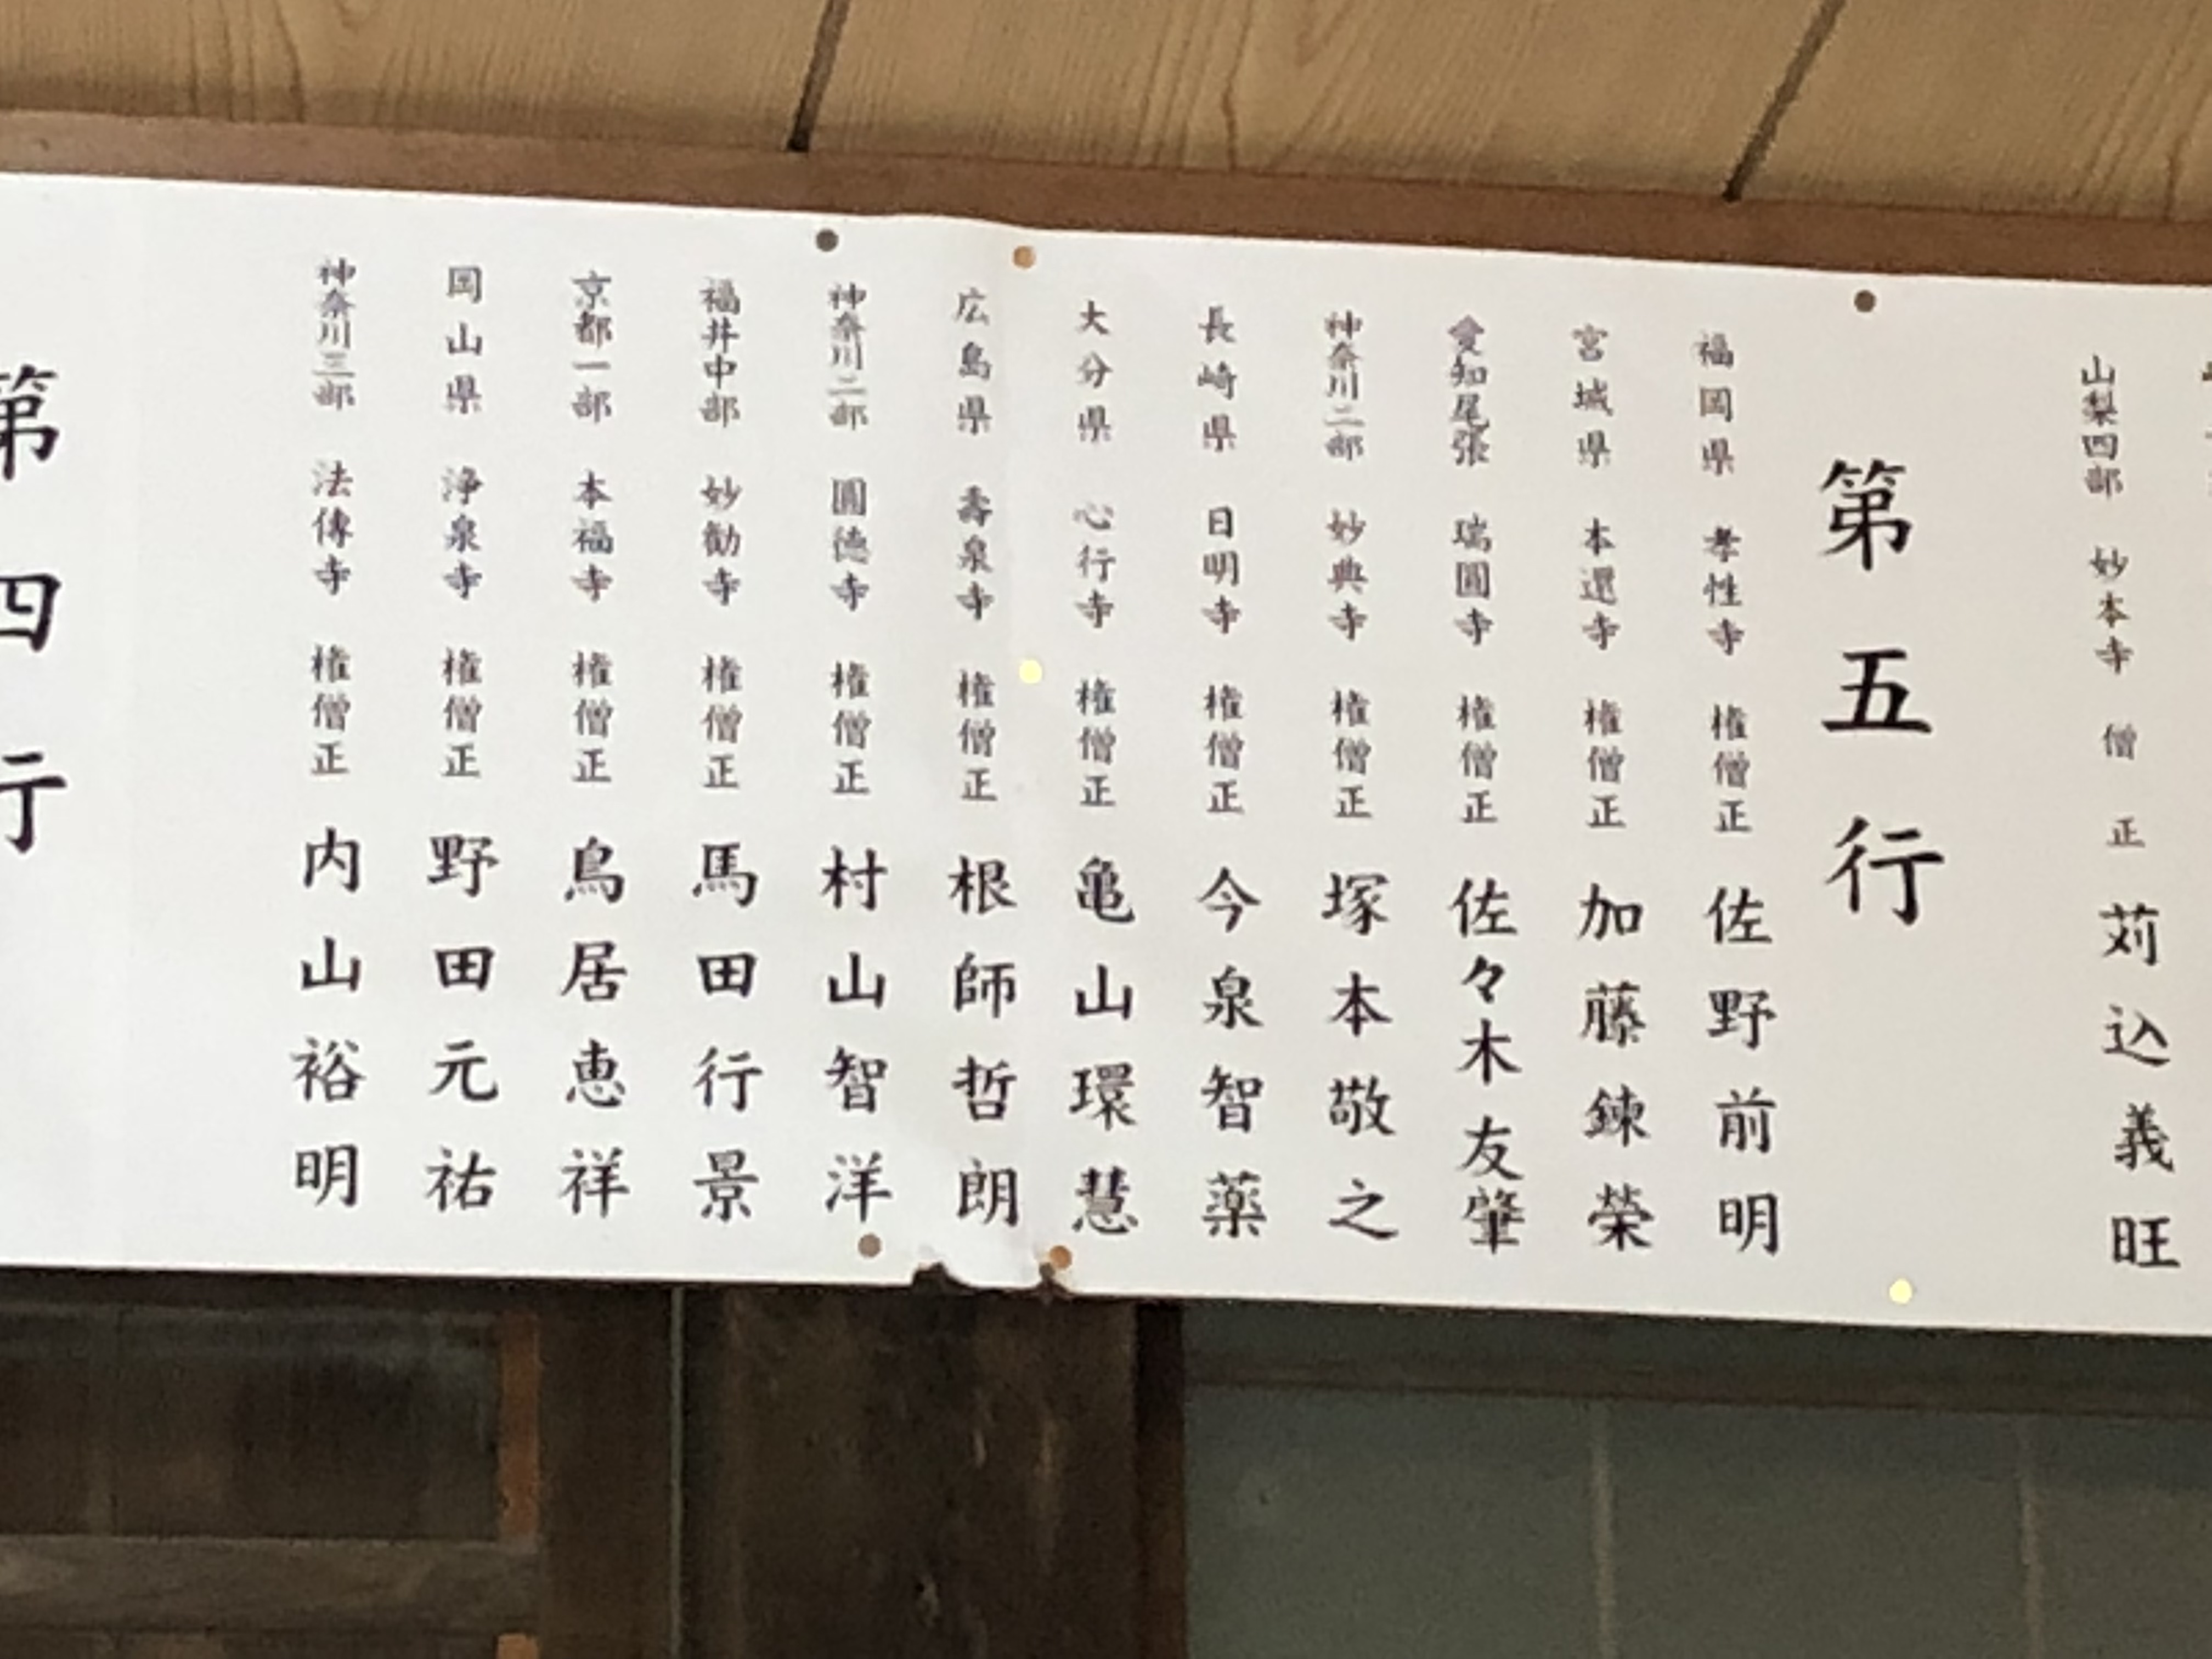 山梨四部 妙本寺 僧正 苅込義旺
第五行
福岡県 孝性寺 権僧正 佐野前明
宮城県 本還寺 権僧正 加藤錬榮
愛知尾張 瑞圓寺 権僧正 佐々木友肇
神奈川二部 妙典寺 権僧正 塚本敬之
長崎県 日明寺 権僧正 今泉智薬
大分県 心行寺 権僧正 亀山環慧
広島県 壽泉寺 権僧正 根師哲朗
神奈川二部 圓徳寺 権僧正 村山智洋
福井中部 妙勧寺 権僧正 馬田行景
京都一部 本福寺 権僧正 鳥居恵祥
岡山県 浄泉寺 権僧正 野田元祐
神奈川三部 法傳寺 権僧正 内山裕明
第四行